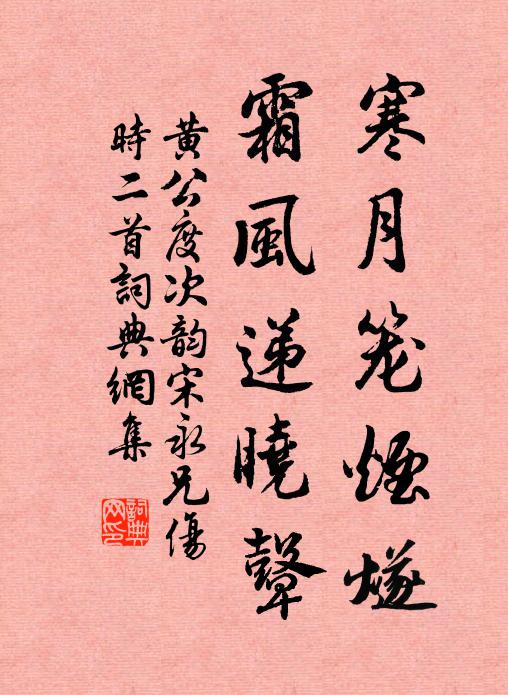 寒月笼煙燧
霜風递曉鼙
黄公度次韵宋永兄傷
時二首詞典網集
詞典
网印